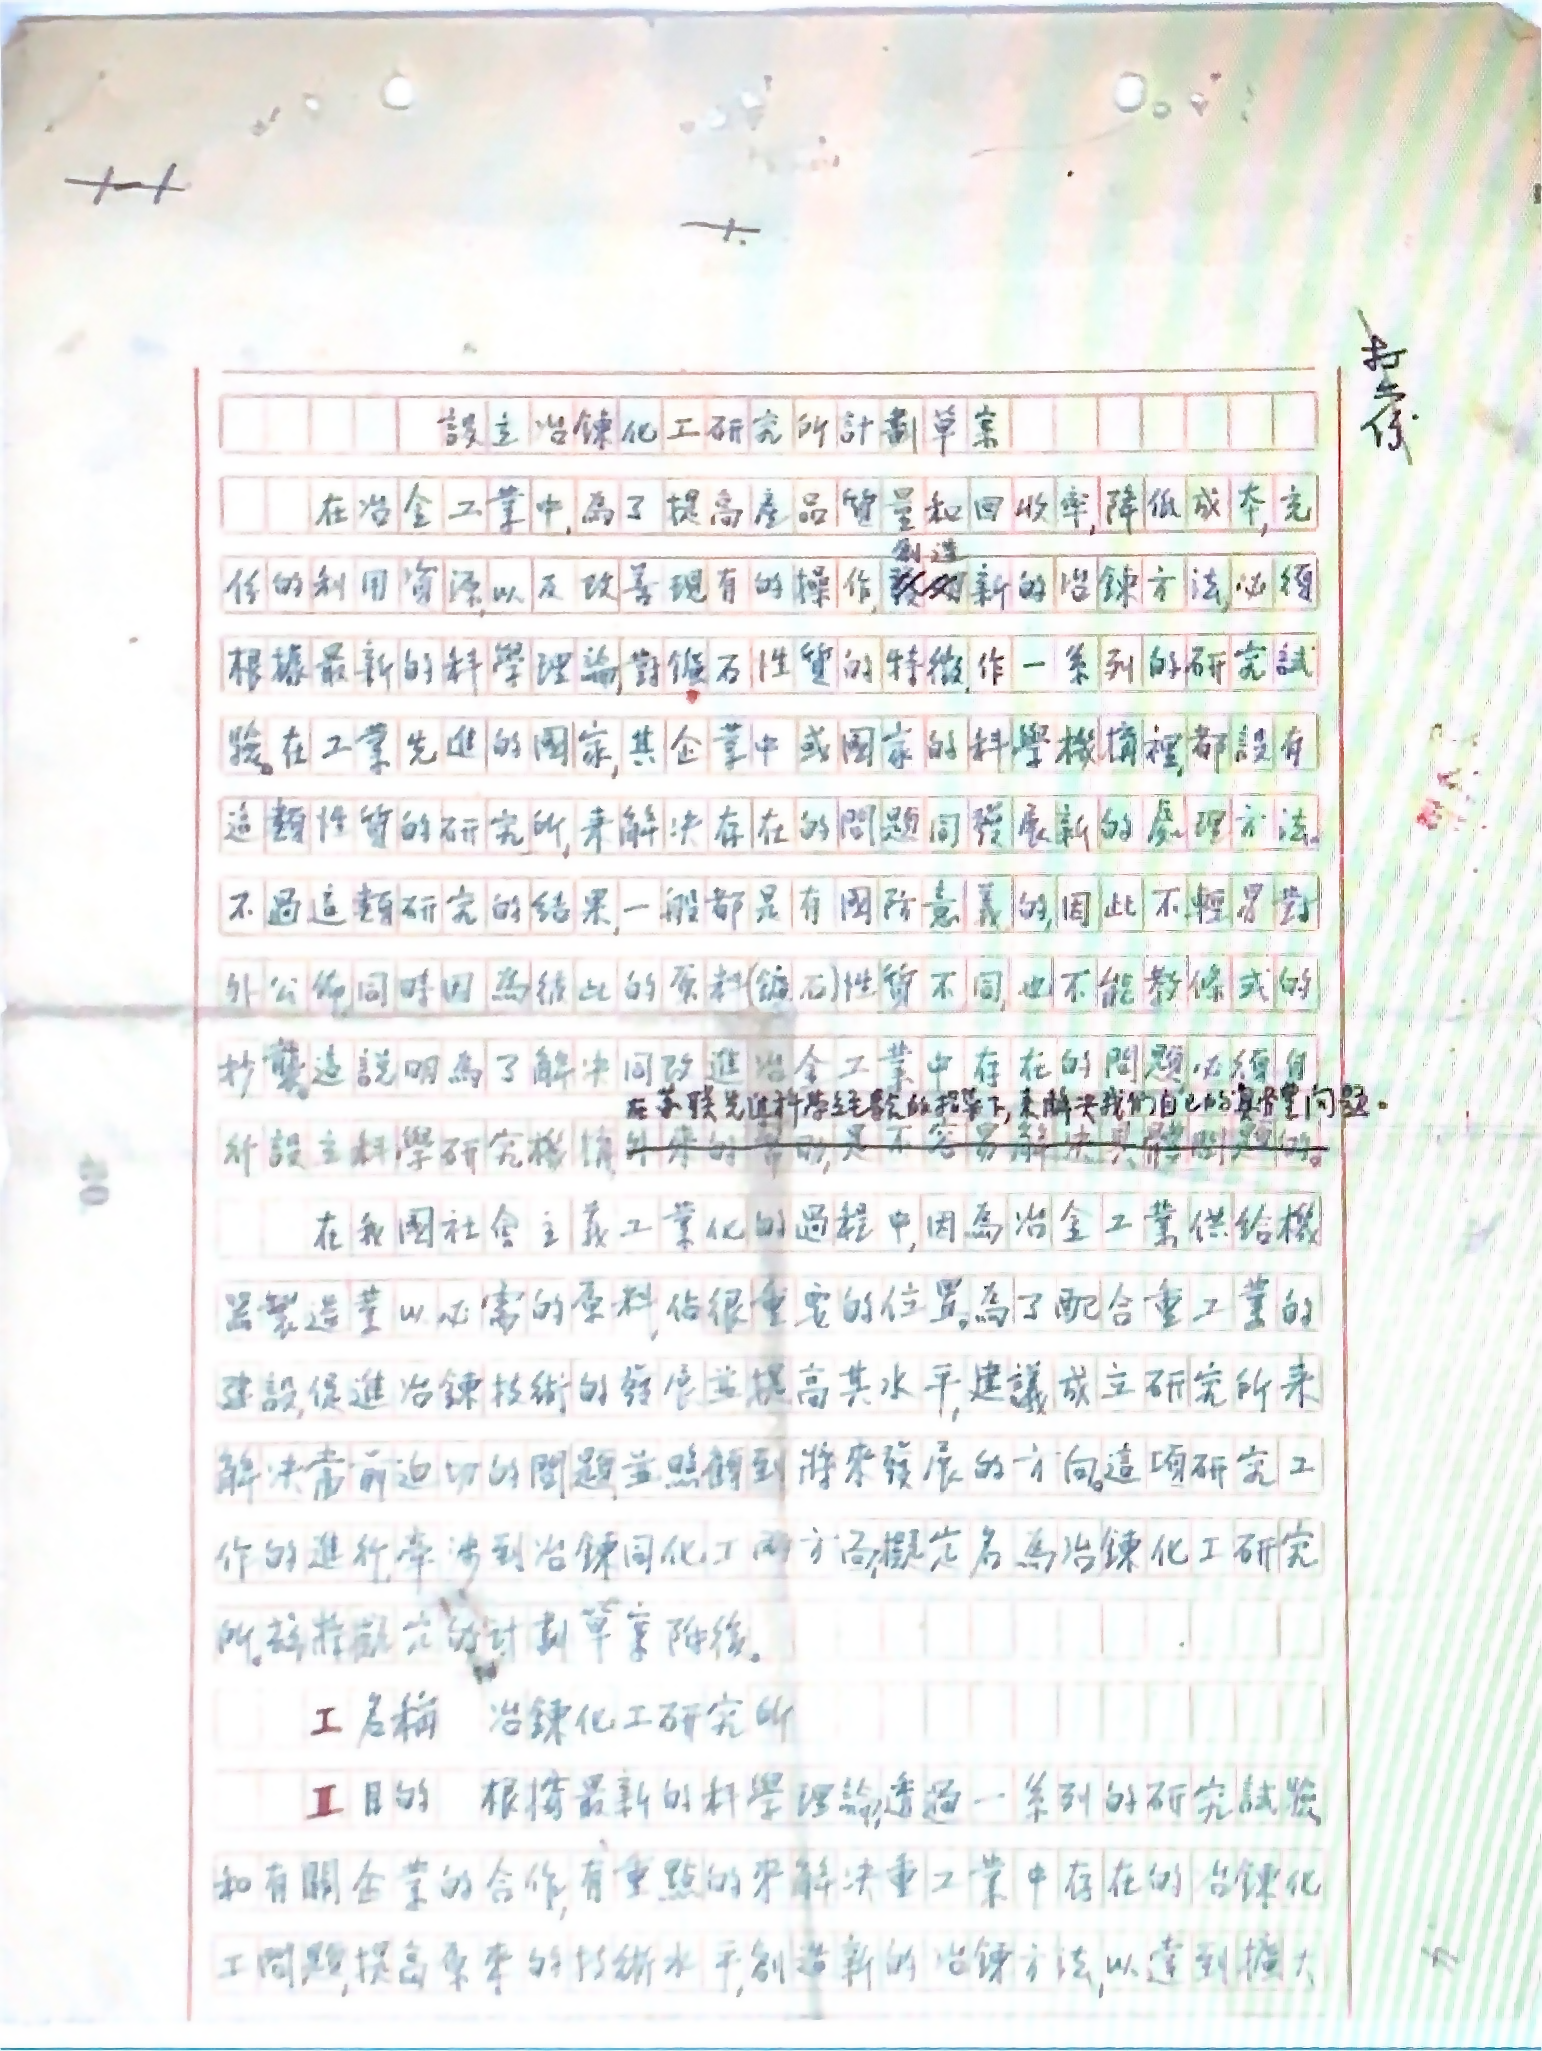 設立冶鍊化工研究所計劃草案
在冶金工業中,為了提高產品質量和回收率,降低成本,充
創造
份的利用資源,以及改善現有的操作,新的冶鍊方法,必須
根據最新的科學理論,對鑛石性質的特徵,作一系列的研究試
驗。在工業先進的國家,其企業中或國家的科學機構裡,都設有
這類性質的研究所,來解決存在的問題同發展新的處理方法。
不過這類研究的結果,一般都是有國防意義的,因此不輕易對
外公佈,同時因為彼此的原料(鑛石)性質不同,也不能教條式的
抄襲。這說明為了解決同改進冶金工業中存在的問題必須自
在蘇聯先進科學經驗的指導下,來解決我們自己的具體問題。
行設立科學研究機構外來的幫助,是不容易解決具體問題的。
在我國社會主義工業化的過程中,因為冶金工業供給機
器製造業以必需的原料,佔很重要的位置。為了配合重工業的
建設,促進冶鍊技術的發展並提高其水平,建議成立研究所來
解決當前迫切的問題,並照顧到將來發展的方向。這項研究工
作的進行,牽涉到冶鍊同化工兩方面,擬定名為冶鍊化工研究
所。茲將擬定的計劃草案附後。
I 名稱 冶鍊化工研究所
II 目的 根據最新的科學理論,透過一系列的研究試驗,
和有關企業的合作,有重點的來解決重工業中存在的冶鍊化
工問題,提高原來的技術水平,創造新的冶鍊方法,以達到擴大